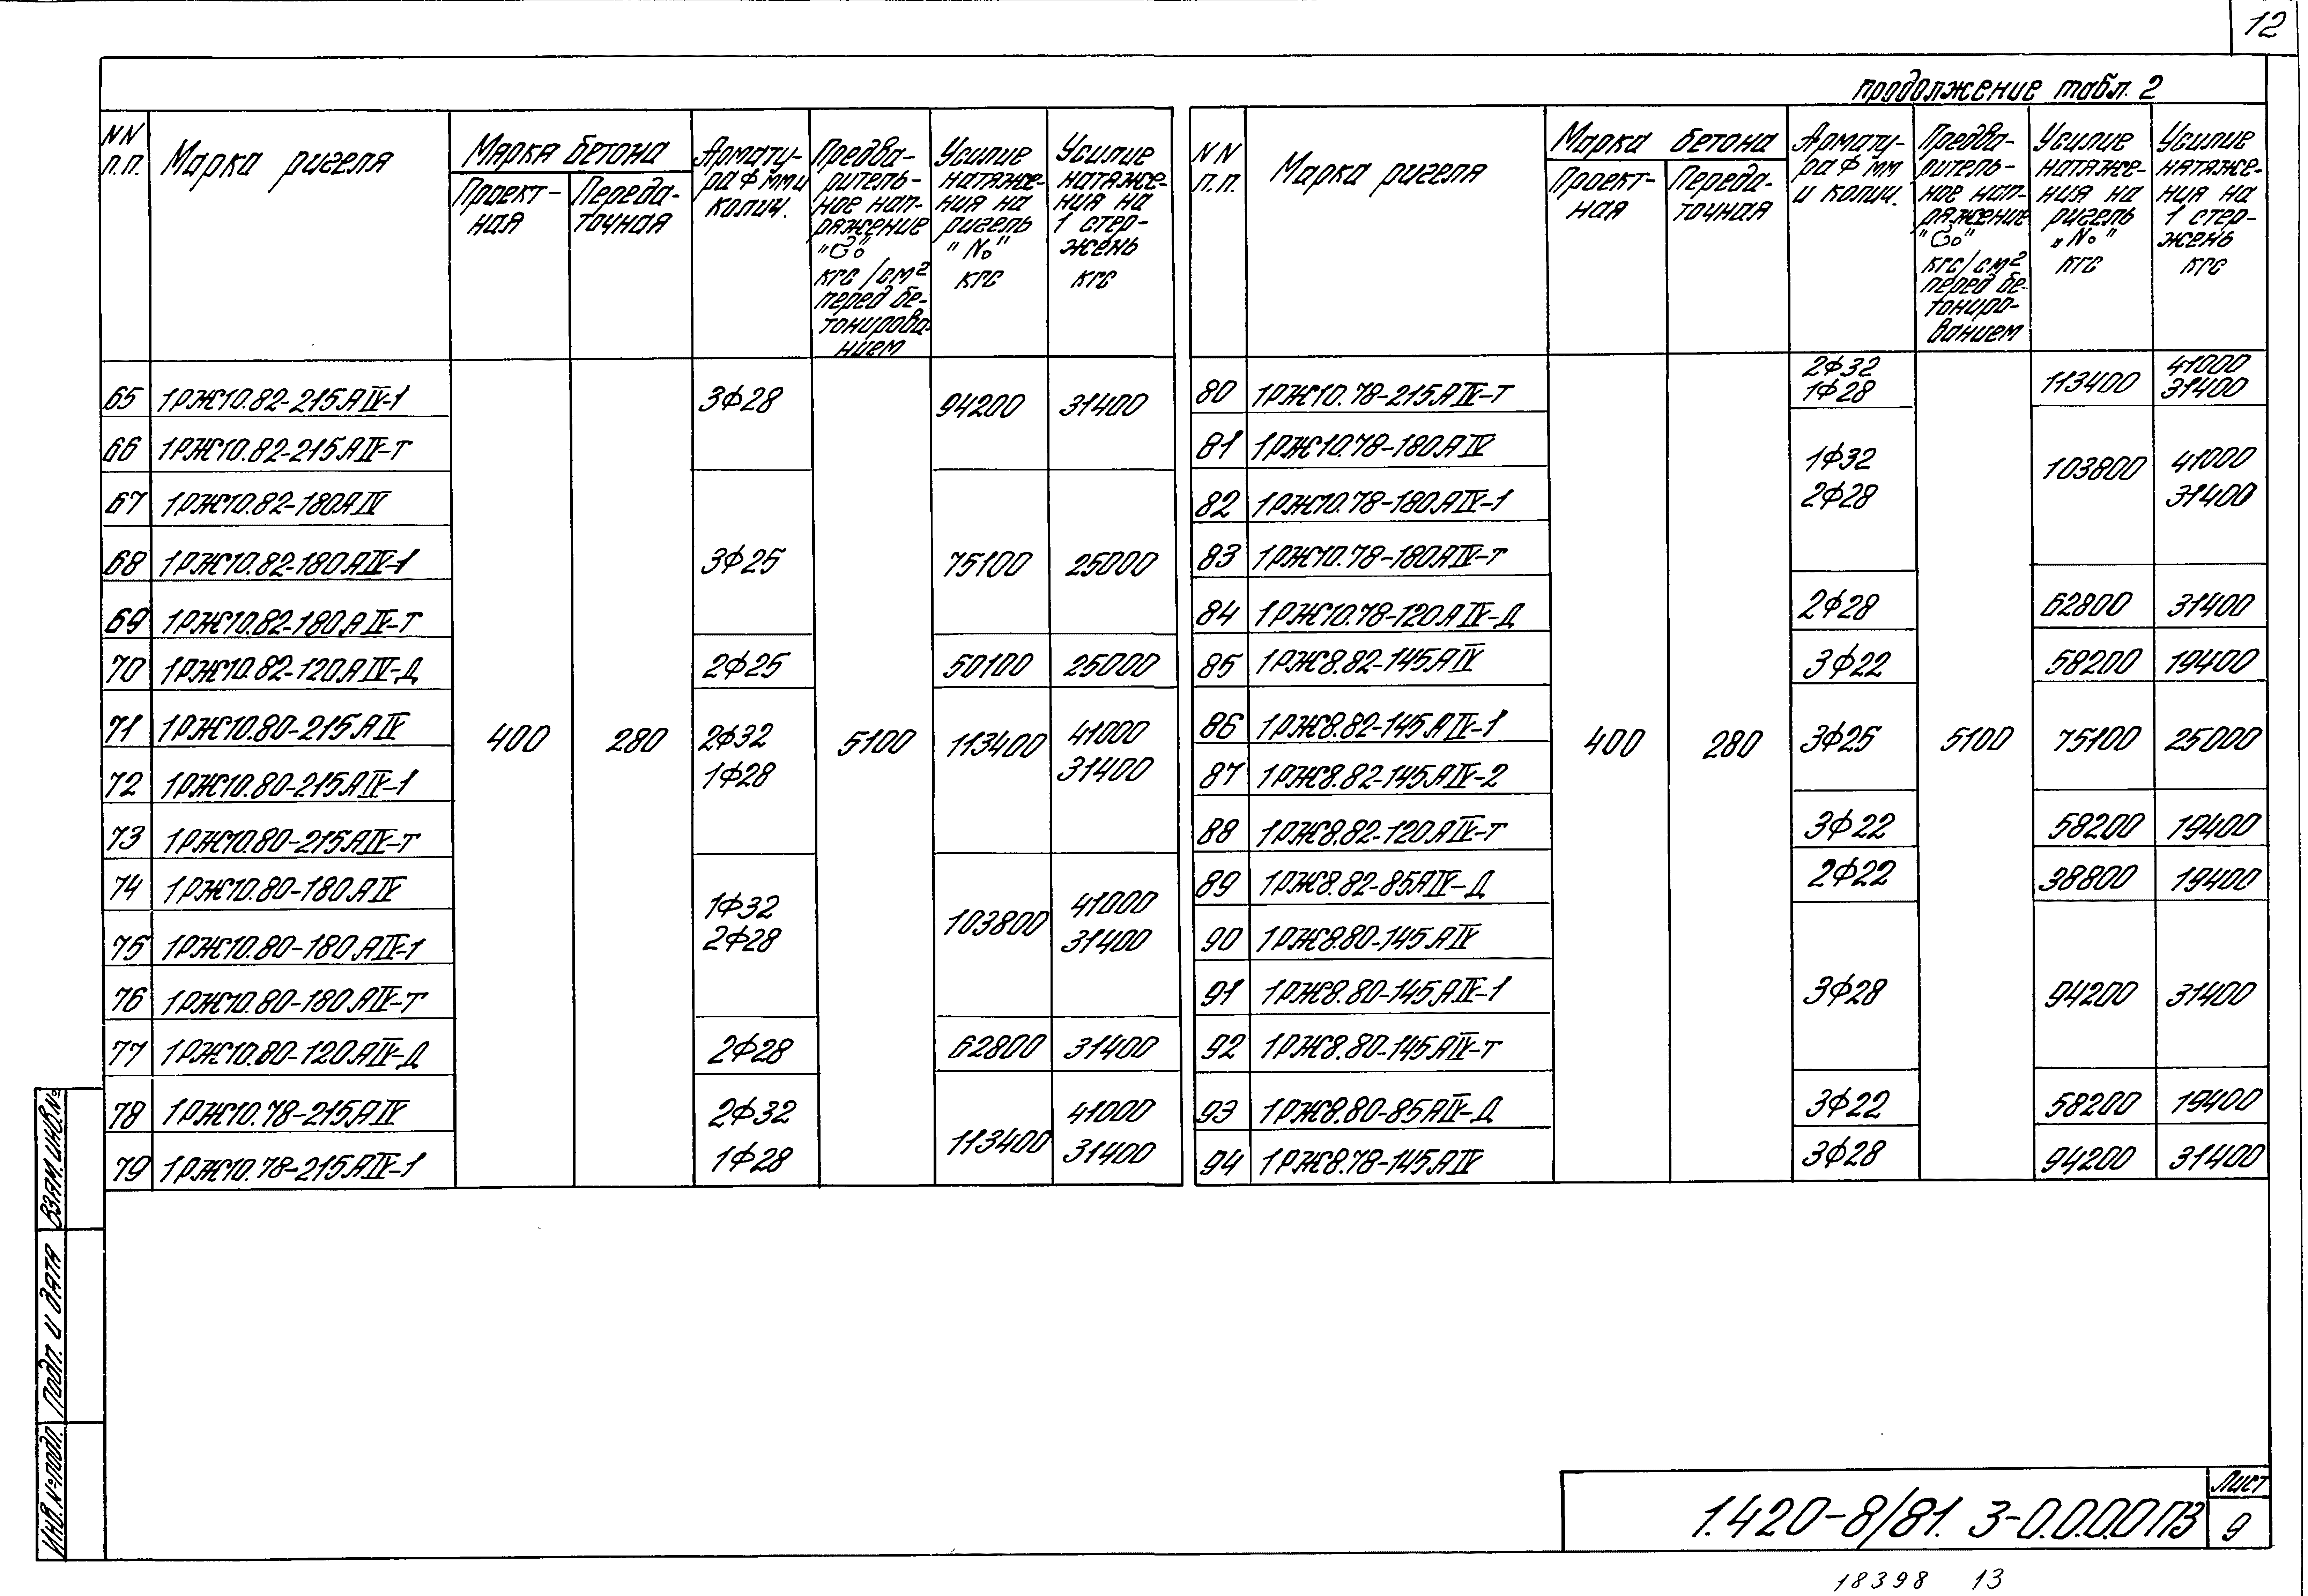 12
продолжение табл. 2
NN п.п. Марка ригеля Марка бетона Проект-ная Переда-точная Армату-ра Ф мм и колич. Предва-ритель-ное нап-ряжение "σ₀" кгс/см² перед бе-тонирова-нием Усилие натяже-ния на ригель "N₀" кгс Усилие натяже-ния на 1 стер-жень кгс
65 1РЖ10.82-215АIV-1 3Ф28 94200 31400
66 1РЖ10.82-215АIV-Т
67 1РЖ10.82-180АIV
68 1РЖ10.82-180АIV-1 3Ф25 75100 25000
69 1РЖ10.82-180АIV-Т
70 1РЖ10.82-120АIV-Д 2Ф25 50100 25000
71 1РЖ10.80-215АIV 400 280 2Ф32 5100 113400 41000
72 1РЖ10.80-215АIV-1 1Ф28 31400
73 1РЖ10.80-215АIV-Т
74 1РЖ10.80-180АIV 1Ф32 103800 41000
75 1РЖ10.80-180АIV-1 2Ф28 31400
76 1РЖ10.80-180АIV-Т
77 1РЖ10.80-120АIV-Д 2Ф28 62800 31400
78 1РЖ10.78-215АIV 2Ф32 113400 41000
79 1РЖ10.78-215АIV-1 1Ф28 31400
NN п.п. Марка ригеля Марка бетона Проект-ная Переда-точная Армату-ра Ф мм и колич. Предва-ритель-ное нап-ряжение "σ₀" кгс/см² перед бе-тониро-ванием Усилие натяже-ния на ригель "N₀" кгс Усилие натяже-ния на 1 стер-жень кгс
80 1РЖ10.78-215АIV-Т 2Ф32 1Ф28 113400 41000 31400
81 1РЖ10.78-180АIV 1Ф32 103800 41000
82 1РЖ10.78-180АIV-1 2Ф28 31400
83 1РЖ10.78-180АIV-Т
84 1РЖ10.78-120АIV-Д 2Ф28 62800 31400
85 1РЖ8.82-145АIV 3Ф22 58200 19400
86 1РЖ8.82-145АIV-1 400 280 3Ф25 5100 75100 25000
87 1РЖ8.82-145АIV-2
88 1РЖ8.82-120АIV-Т 3Ф22 58200 19400
89 1РЖ8.82-85АIV-Д 2Ф22 38800 19400
90 1РЖ8.80-145АIV
91 1РЖ8.80-145АIV-1 3Ф28 94200 31400
92 1РЖ8.80-145АIV-Т
93 1РЖ8.80-85АIV-Д 3Ф22 58200 19400
94 1РЖ8.78-145АIV 3Ф28 94200 31400
Взам. инв. №
Подп. и дата
Инв. № подл.
1.420-8/81. 3-0.0.0.0ПЗ
Лист
9
18398 13